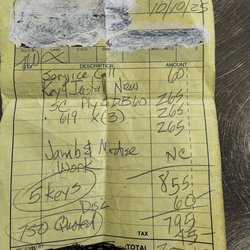 10/10/25
DESCRIPTION AMOUNT
Service Call 60
Key & Install New
SC 265
619 X(3) 265
265
Jamb & Mortise NC
Work
5 Keys 855
Disc 60
750 Quoted 795
TAX 45
TOTAL